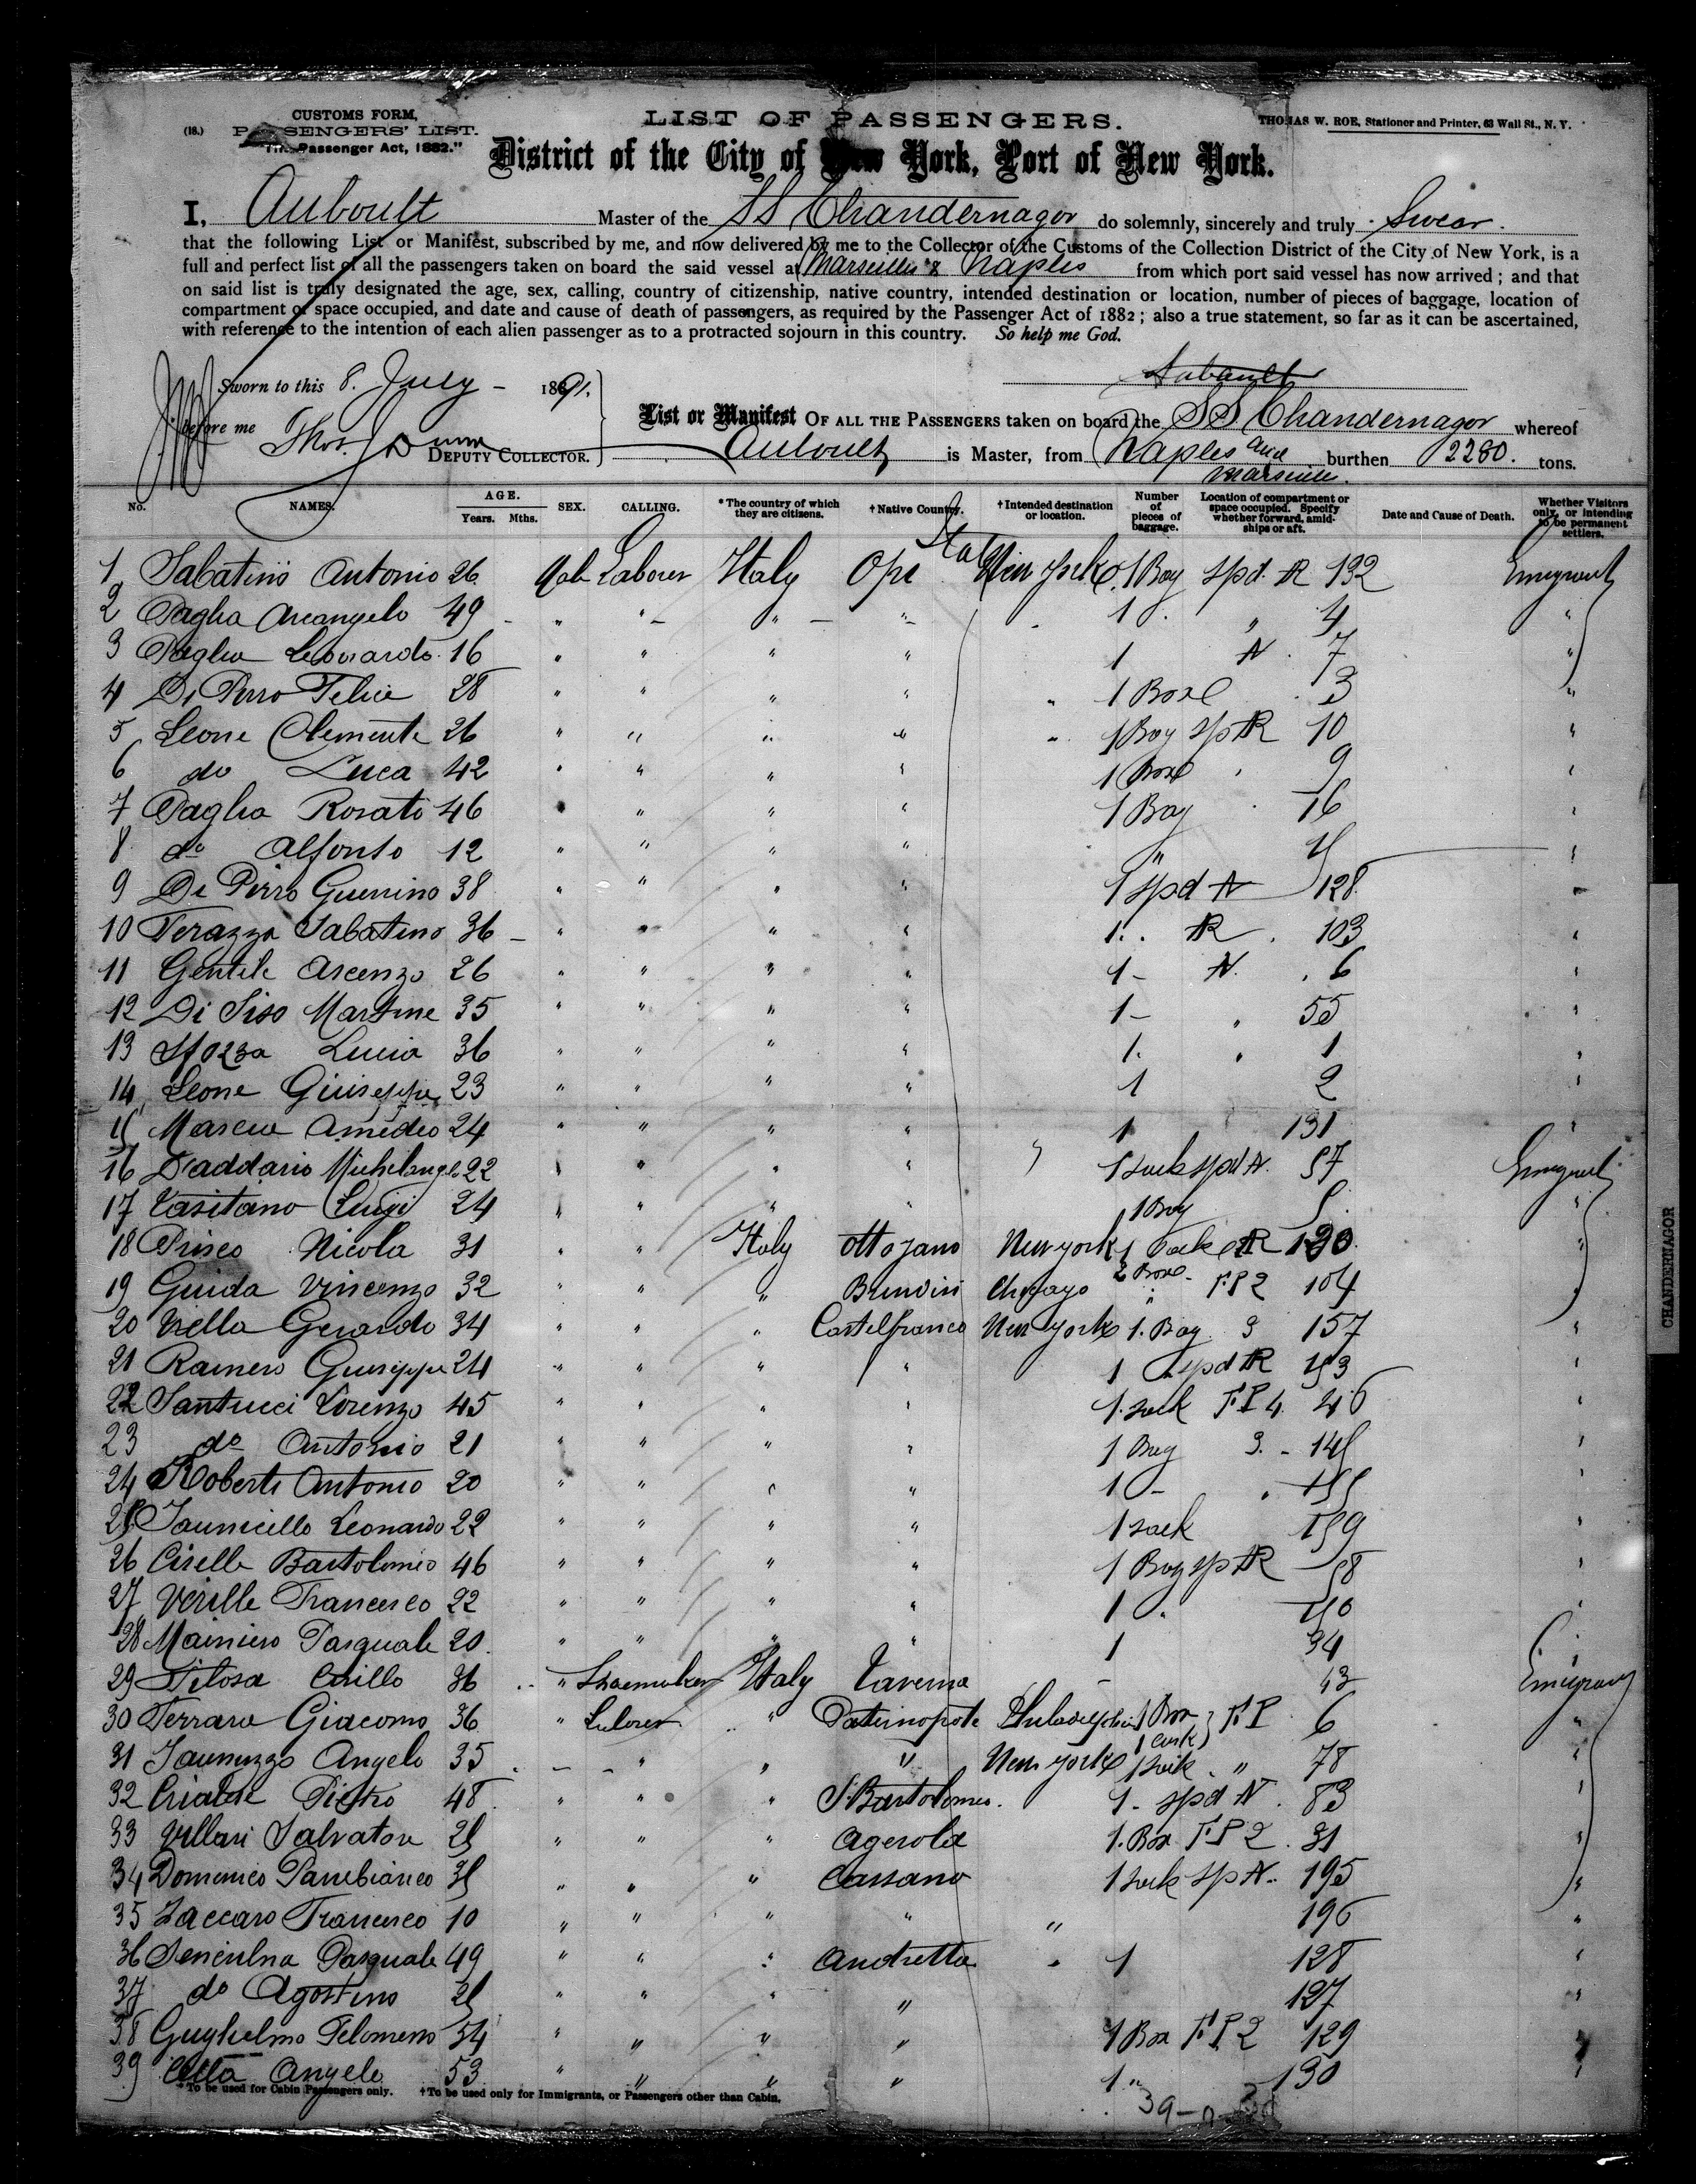 CUSTOMS FORM, LIST OF PASSENGERS. THOMAS W. ROE, Stationer and Printer, 63 Wall St., N. Y.
(18.) PASSENGERS' LIST.
Passenger Act, 1882."
District of the City of New York, Port of New York.
I, Auboult Master of the SS Chandernagor do solemnly, sincerely and truly Swear.
that the following List or Manifest, subscribed by me, and now delivered by me to the Collector of the Customs of the Collection District of the City of New York, is a
full and perfect list of all the passengers taken on board the said vessel at Marseilles & Naples from which port said vessel has now arrived; and that
on said list is truly designated the age, sex, calling, country of citizenship, native country, intended destination or location, number of pieces of baggage, location of
compartment or space occupied, and date and cause of death of passengers, as required by the Passenger Act of 1882; also a true statement, so far as it can be ascertained,
with reference to the intention of each alien passenger as to a protracted sojourn in this country. So help me God.
Sworn to this 8. July - 1891.
before me Thos. J Dunn
DEPUTY COLLECTOR.
List or Manifest OF ALL THE PASSENGERS taken on board the SS Chandernagor whereof
Auboult is Master, from Naples and Marseilles. burthen 2280. tons.
No. NAMES. AGE. Years. Mths. SEX. CALLING. *The country of which they are citizens. †Native Country. †Intended destination or location. Number of pieces of baggage. Location of compartment or space occupied. Specify whether forward, amidships or aft. Date and Cause of Death. Whether Visitors only, or intending to be permanent settlers.
1 Sabatino Antonio 26 Labourer Italy Opi New York 1 Bag spd. R 132 Emigrant
2 Paglia Arcangelo 49 " " " " 1 " 4 "
3 Paglia Leonardo 16 " " " " 1 N 7 "
4 Di Pirro Felice 28 " " " " " 1 Box 3 "
5 Leone Clemente 26 " " " " " 1 Bag sp R 10 "
6 do Luca 42 " " " " 1 Box 9 "
7 Paglia Rosato 46 " " " " 1 Bag 16 "
8 do Alfonso 12 " " " " "
9 De Pirro Guerrino 38 " " " " 1 spd N 128 "
10 Terazza Sabatino 36 " " " " 1 R 103 "
11 Gentile Ascenzo 26 " " " " 1 N. 6 "
12 Di Siso Martine 35 " " " " 1 " 55 "
13 Sfozza Lucia 36 " " " " 1. " 1 "
14 Leone Giuseppe 23 " " " " 1 2 "
15 Amedeo 24 " " " " 1 131 "
16 D'addario Michelangelo 22 " " " " 1 sack spd N. 57 Emigrant
17 Luigi 24 " " " " 1 Bag 5. "
18 Prisco Nicola 31 " " Italy Ottojano New york 1 Sack R 130 "
19 Guida Vincenzo 32 " " " Chicago 2 Box F.P 2 104 "
20 Viella Gerardo 34 " " " Castelfranco New York 1. Bag 3 157 "
21 Giuseppe 24 " " " " 1 spd R 153 "
22 Santucci Lorenzo 45 " " " " 1. sack F.P 4 46 "
23 do Antonio 21 " " " " 1 Bag 3. 145 "
24 Roberti Antonio 20 " " " " 1 " 155 "
25 Leonardo 22 " " " " 1 sack 159 "
26 Cirelli Bartolomeo 46 " " " " 1 Bag sp R 58 "
27 Francesco 22 " " " " 1 "
28 Mainiero Pasquale 20 " " " " 1 34 "
29 Cirillo 36 " Shoemaker Italy Taverna 43 Emigrant
30 Ferrara Giacomo 36 " Labourer " Paternopoli Philadelphia 1 Box F.P 6 "
31 Angelo 35 " " " New york 1 sack " 78 "
32 Pietro 48 " " " S. Bartolomeo. 1. spd N 83 "
33 Villari Salvatore 25 " " " Agerola 1. Box F.P 2. 31 "
34 Domenico Panebianco 35 " " " Cassano 1 sack sp N. 195 "
35 Zaccaro Francesco 10 " " " " " 196 "
36 Pasquale 49 " " " Andretta " 1 128 "
37 do Agostino 25 " " " " 127 "
38 Guglielmo Filomeno 54 " " " " 1 Box F.P 2 129 "
39 Angelo 53 " " " " 1 " 130 "
*To be used for Cabin Passengers only. †To be used only for Immigrants, or Passengers other than Cabin.
CHANDERNAGOR